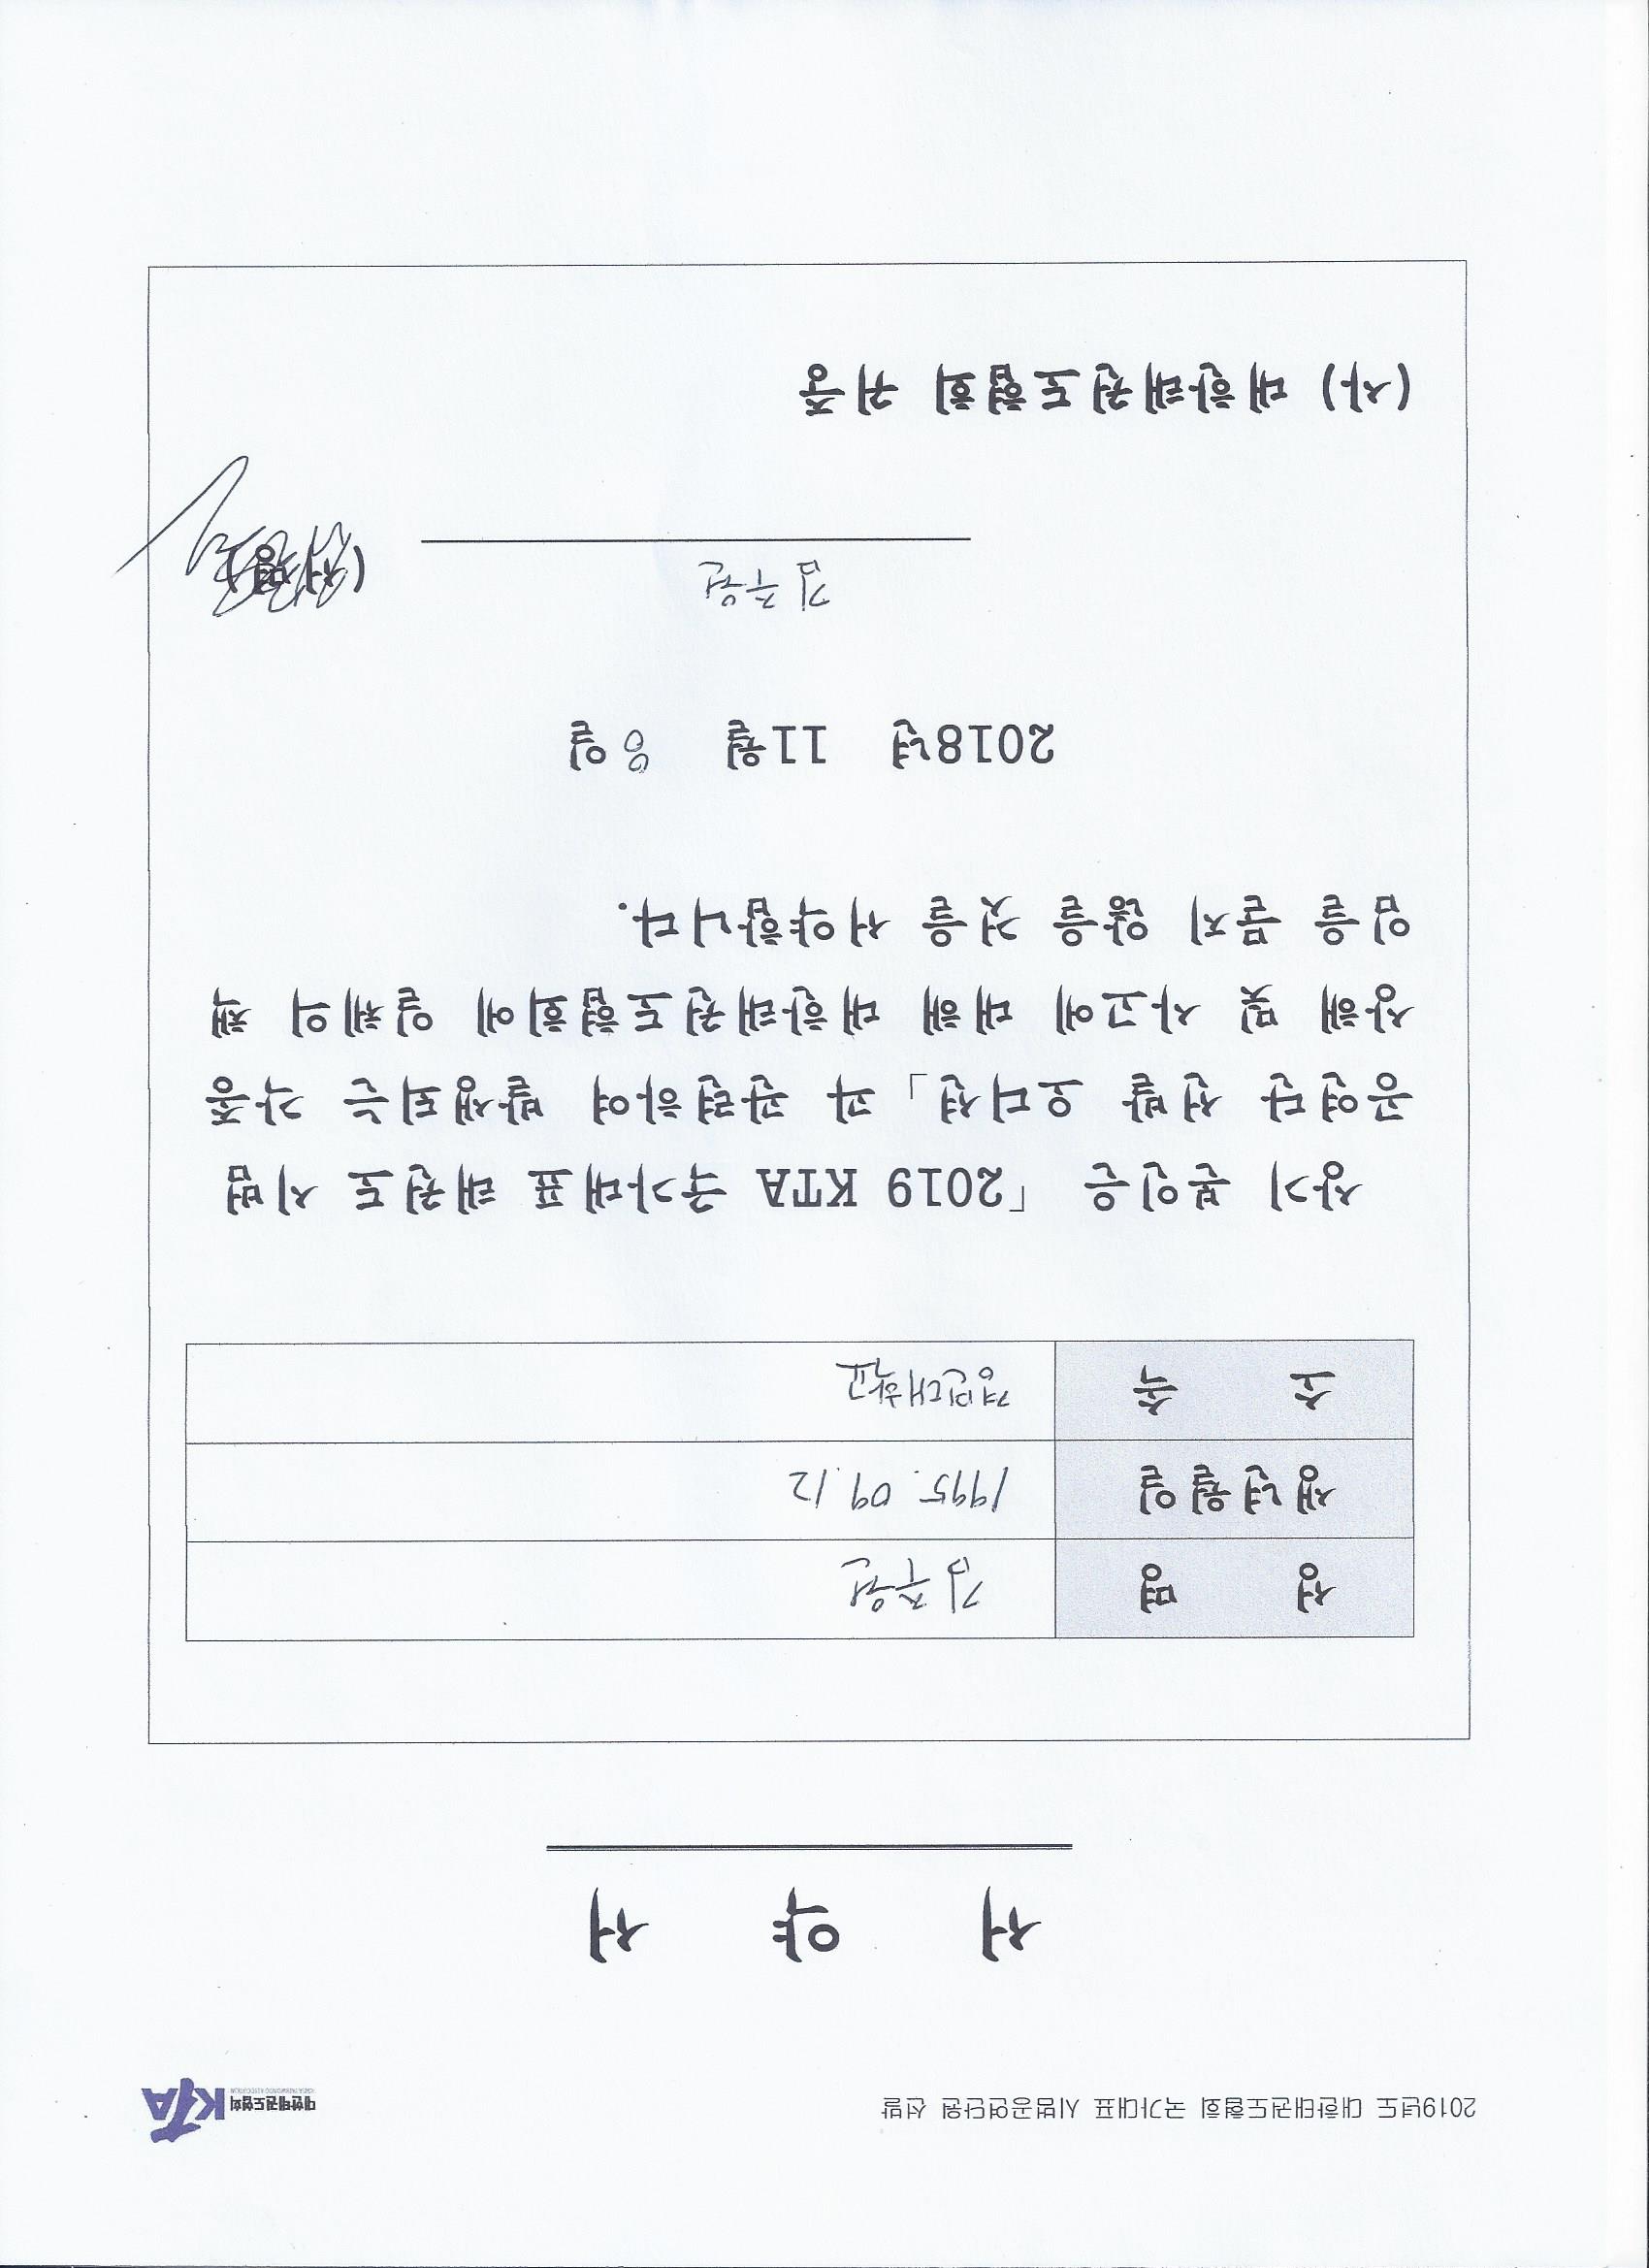 2019년도 대한태권도협회 국가대표 시범공연단원 선발
KTA 대한태권도협회
KOREA TAEKWONDO ASSOCIATION
서 약 서
성 명 김주원
생년월일 1995. 09. 12
소 속 경민대학교
상기 본인은 「2019 KTA 국가대표 태권도 시범
공연단 선발 오디션」과 관련하여 발생되는 각종
상해 및 사고에 대해 대한태권도협회에 일체의 책
임을 묻지 않을 것을 서약합니다.
2018년 11월 8일
김주원 (서명)
(사) 대한태권도협회 귀중